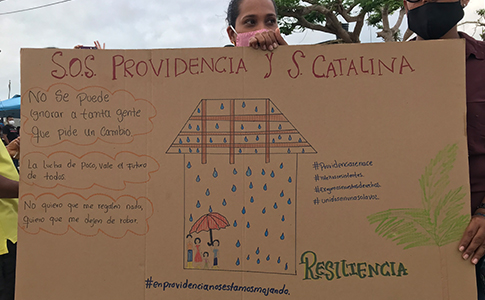 S.O.S. PROVIDENCIA Y S. CATALINA
No Se Puede
ignorar a tanta gente
que pide un Cambio.
La lucha de poco, vale el futuro
de todos.
No quiero que me regalen nada,
quiero que me dejen de robar.
#Providenciarenace
#unidosenunasolavoz
RESILIENCIA
#enprovidencianosestamosmojando.